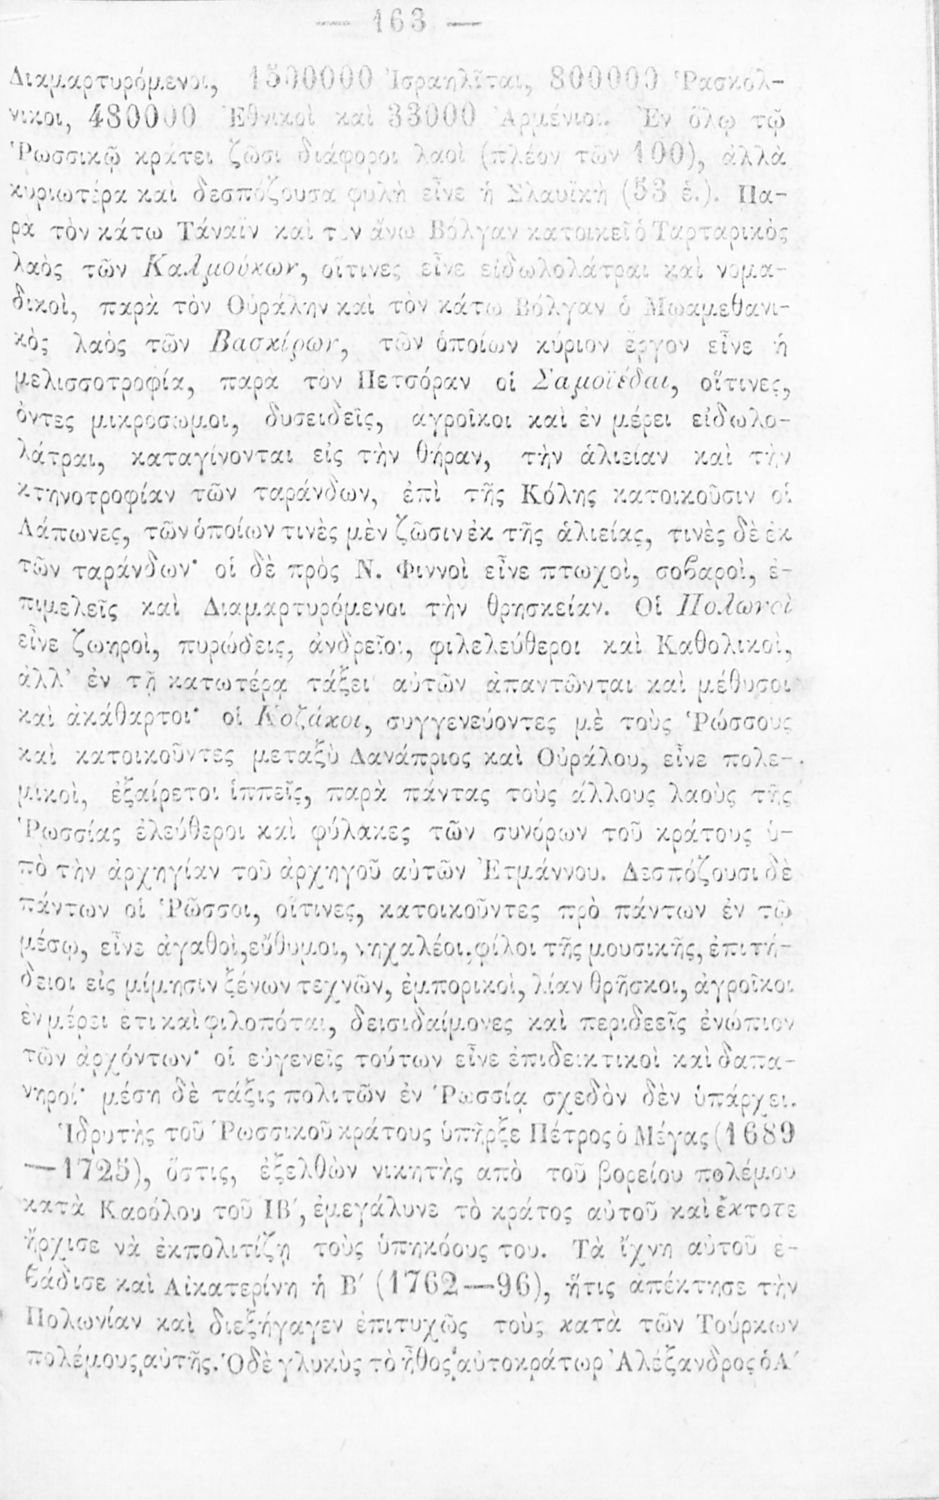 — 163 —
Διαμαρτυρόμενοι, 1500000 Ἰσραηλῖται, 800000 Ῥασκόλ-
νικοι, 480000 Ἐθνικοὶ καὶ 33000 Ἀρμένιοι. Ἐν ὅλῳ τῷ
Ῥωσσικῷ κράτει ζῶσι διάφοροι λαοὶ (πλέον τῶν 100), ἀλλὰ
κυριωτέρα καὶ δεσπόζουσα φυλὴ εἶνε ἡ Σλαυϊκὴ (53 ἑ.). Πα-
ρὰ τὸν κάτω Τάναϊν καὶ τὸν ἄνω Βόλγαν κατοικεῖ ὁ Ταρταρικὸς
λαὸς τῶν Καλμούκων, οἵτινες εἶνε εἰδωλολάτραι καὶ νομα-
δικοὶ, παρὰ τὸν Οὐράλην καὶ τὸν κάτω Βόλγαν ὁ Μωαμεθανι-
κὸς λαὸς τῶν Βασκίρων, τῶν ὁποίων κύριον ἔργον εἶνε ἡ
μελισσοτροφία, παρὰ τὸν Πετσόραν οἱ Σαμοϊέδαι, οἵτινες,
ὄντες μικρόσωμοι, δυσειδεῖς, ἀγροῖκοι καὶ ἐν μέρει εἰδωλο-
λάτραι, καταγίνονται εἰς τὴν θήραν, τὴν ἁλιείαν καὶ τὴν
κτηνοτροφίαν τῶν ταράνδων, ἐπὶ τῆς Κόλης κατοικοῦσιν οἱ
Λάπωνες, τῶν ὁποίων τινὲς μὲν ζῶσιν ἐκ τῆς ἁλιείας, τινὲς δὲ ἐκ
τῶν ταράνδων· οἱ δὲ πρὸς Ν. Φιννοὶ εἶνε πτωχοὶ, σοβαροὶ, ἐ-
πιμελεῖς καὶ Διαμαρτυρόμενοι τὴν θρησκείαν. Οἱ Πολωνοὶ
εἶνε ζωηροὶ, πυρώδεις, ἀνδρεῖοι, φιλελεύθεροι καὶ Καθολικοὶ,
ἀλλ' ἐν τῇ κατωτέρᾳ τάξει αὐτῶν ἀπαντῶνται καὶ μέθυσοι
καὶ ἀκάθαρτοι· οἱ Κοζάκοι, συγγενεύοντες μὲ τοὺς Ῥώσσους
καὶ κατοικοῦντες μεταξὺ Δανάπριος καὶ Οὐράλου, εἶνε πολε-
μικοὶ, ἐξαίρετοι ἱππεῖς, παρὰ πάντας τοὺς ἄλλους λαοὺς τῆς
Ῥωσσίας ἐλεύθεροι καὶ φύλακες τῶν συνόρων τοῦ κράτους ὑ-
πὸ τὴν ἀρχηγίαν τοῦ ἀρχηγοῦ αὐτῶν Ἑτμάννου. Δεσπόζουσι δὲ
πάντων οἱ Ῥῶσσοι, οἵτινες, κατοικοῦντες πρὸ πάντων ἐν τῷ
μέσῳ, εἶνε ἀγαθοὶ, εὔθυμοι, νηχαλέοι, φίλοι τῆς μουσικῆς, ἐπιτή-
δειοι εἰς μίμησιν ξένων τεχνῶν, ἐμπορικοὶ, λίαν θρῆσκοι, ἀγροῖκοι
ἐν μέρει ἔτι καὶ φιλοπόται, δεισιδαίμονες καὶ περιδεεῖς ἐνώπιον
τῶν ἀρχόντων· οἱ εὐγενεῖς τούτων εἶνε ἐπιδεικτικοὶ καὶ δαπα-
νηροί· μέση δὲ τάξις πολιτῶν ἐν Ῥωσσίᾳ σχεδὸν δὲν ὑπάρχει.
Ἱδρυτὴς τοῦ Ῥωσσικοῦ κράτους ὑπῆρξε Πέτρος ὁ Μέγας (1689
—1725), ὅστις, ἐξελθὼν νικητὴς ἀπὸ τοῦ βορείου πολέμου
κατὰ Καρόλου τοῦ ΙΒ', ἐμεγάλυνε τὸ κράτος αὐτοῦ καὶ ἔκτοτε
ἤρχισε νὰ ἐκπολιτίζῃ τοὺς ὑπηκόους του. Τὰ ἴχνη αὐτοῦ ἐ-
βάδισε καὶ Αἰκατερίνη ἡ Β' (1762—96), ἥτις ἀπέκτησε τὴν
Πολωνίαν καὶ διεξήγαγεν ἐπιτυχῶς τοὺς κατὰ τῶν Τούρκων
πολέμους αὐτῆς. Ὁ δὲ γλυκὺς τὸ ἦθος αὐτοκράτωρ Ἀλέξανδρος ὁ Α'